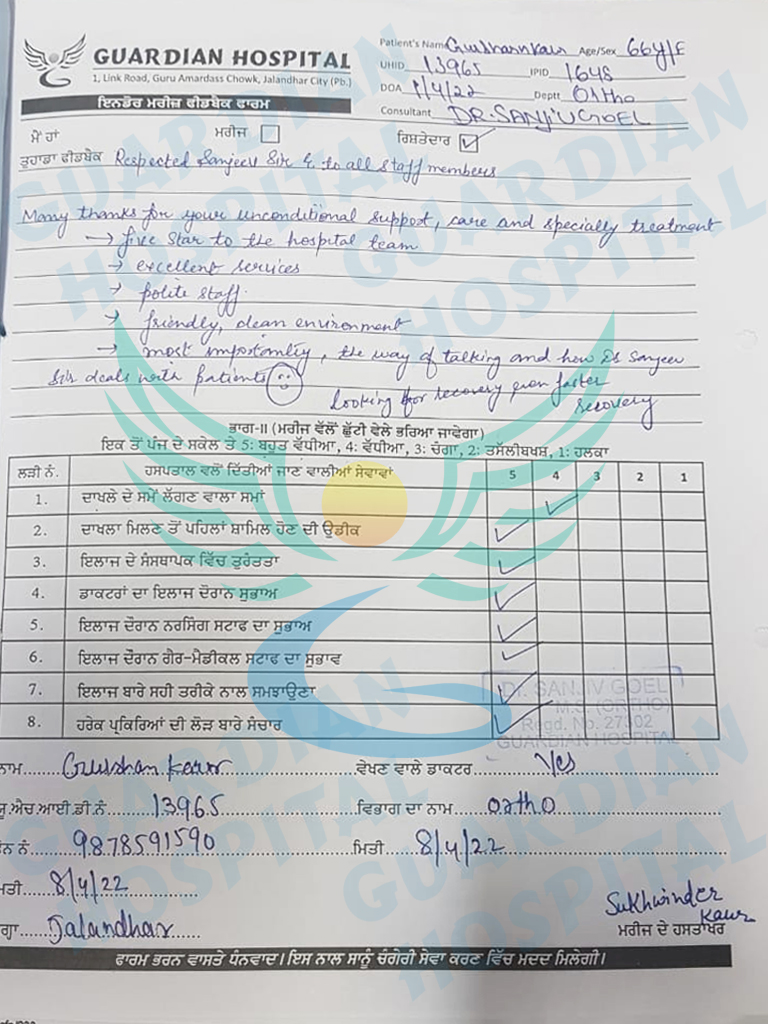 GUARDIAN HOSPITAL
1, Link Road, Guru Amardass Chowk, Jalandhar City (Pb.)
ਇਨਡੋਰ ਮਰੀਜ਼ ਫੀਡਬੈਕ ਫਾਰਮ
Patient's Name Gursharn Kaur Age/Sex 66Y/F
UHID 13965 IPID 1648
DOA 1/4/22 Deptt Ortho
Consultant DR. SANJIV GOEL
ਮੈਂ ਹਾਂ ਮਰੀਜ ਰਿਸ਼ਤੇਦਾਰ
ਤੁਹਾਡਾ ਫੀਡਬੈਕ Respected Sanjeev Sir & to all staff members
Many thanks for your unconditional support, care and specially treatment
→ five star to the hospital team
→ excellent services
→ polite staff
→ friendly, clean environment
→ most importantly, the way of talking and how Dr Sanjeev
Sir deals with patients
Looking for recovery even faster
recovery
ਭਾਗ-II (ਮਰੀਜ ਵੱਲੋਂ ਛੁੱਟੀ ਵੇਲੇ ਭਰਿਆ ਜਾਵੇਗਾ)
ਇਕ ਤੋਂ ਪੰਜ ਦੇ ਸਕੇਲ ਤੇ 5: ਬਹੁਤ ਵੱਧੀਆ, 4: ਵੱਧੀਆ, 3: ਚੰਗਾ, 2: ਤਸੱਲੀਬਖਸ਼, 1: ਹਲਕਾ
ਲੜੀ ਨੰ. ਹਸਪਤਾਲ ਵਲੋਂ ਦਿੱਤੀਆਂ ਜਾਣ ਵਾਲੀਆਂ ਸੇਵਾਵਾਂ 5 4 3 2 1
1. ਦਾਖਲੇ ਦੇ ਸਮੇਂ ਲੱਗਣ ਵਾਲਾ ਸਮਾਂ
2. ਦਾਖਲਾ ਮਿਲਣ ਤੋਂ ਪਹਿਲਾਂ ਸ਼ਾਮਿਲ ਹੋਣ ਦੀ ਉਡੀਕ
3. ਇਲਾਜ ਦੇ ਸੰਸਥਾਪਕ ਵਿੱਚ ਤੁਰੰਤਤਾ
4. ਡਾਕਟਰਾਂ ਦਾ ਇਲਾਜ ਦੌਰਾਨ ਸੁਭਾਅ
5. ਇਲਾਜ ਦੌਰਾਨ ਨਰਸਿੰਗ ਸਟਾਫ ਦਾ ਸੁਭਾਅ
6. ਇਲਾਜ ਦੌਰਾਨ ਗੈਰ-ਮੈਡੀਕਲ ਸਟਾਫ ਦਾ ਸੁਭਾਵ
7. ਇਲਾਜ ਬਾਰੇ ਸਹੀ ਤਰੀਕੇ ਨਾਲ ਸਮਝਾਉਣਾ
8. ਹਰੇਕ ਪ੍ਰਕਿਰਿਆਂ ਦੀ ਲੋੜ ਬਾਰੇ ਸੰਚਾਰ
Dr. SANJIV GOEL
M.S. (ORTHO)
Regd. No. 27302
GUARDIAN HOSPITAL
ਨਾਮ Gursharn Kaur ਵੇਖਣ ਵਾਲੇ ਡਾਕਟਰ Yes
ਯੂ.ਐਚ.ਆਈ.ਡੀ.ਨੰ. 13965 ਵਿਭਾਗ ਦਾ ਨਾਮ ortho
ਨ ਨੰ. 9878591590 ਮਿਤੀ 8/4/22
8/4/22
Jalandhar
Sukhwinder Kaur
ਮਰੀਜ ਦੇ ਹਸਤਾਖਰ
ਫਾਰਮ ਭਰਨ ਵਾਸਤੇ ਧੰਨਵਾਦ। ਇਸ ਨਾਲ ਸਾਨੂੰ ਚੰਗੇਰੀ ਸੇਵਾ ਕਰਣ ਵਿੱਚ ਮਦਦ ਮਿਲੇਗੀ।
GUARDIAN HOSPITAL
GUARDIAN HOSPITAL
GUARDIAN HOSPITAL
GUARDIAN HOSPITAL